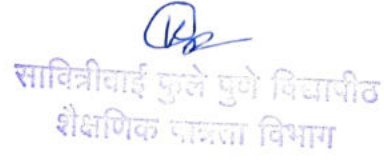 सावित्रीबाई फुले पुणे विद्यापीठ
शैक्षणिक पात्रता विभाग